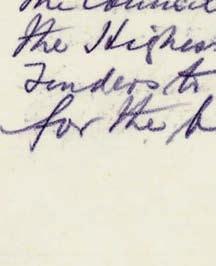 the Council
the Highes
Tenders to
for the